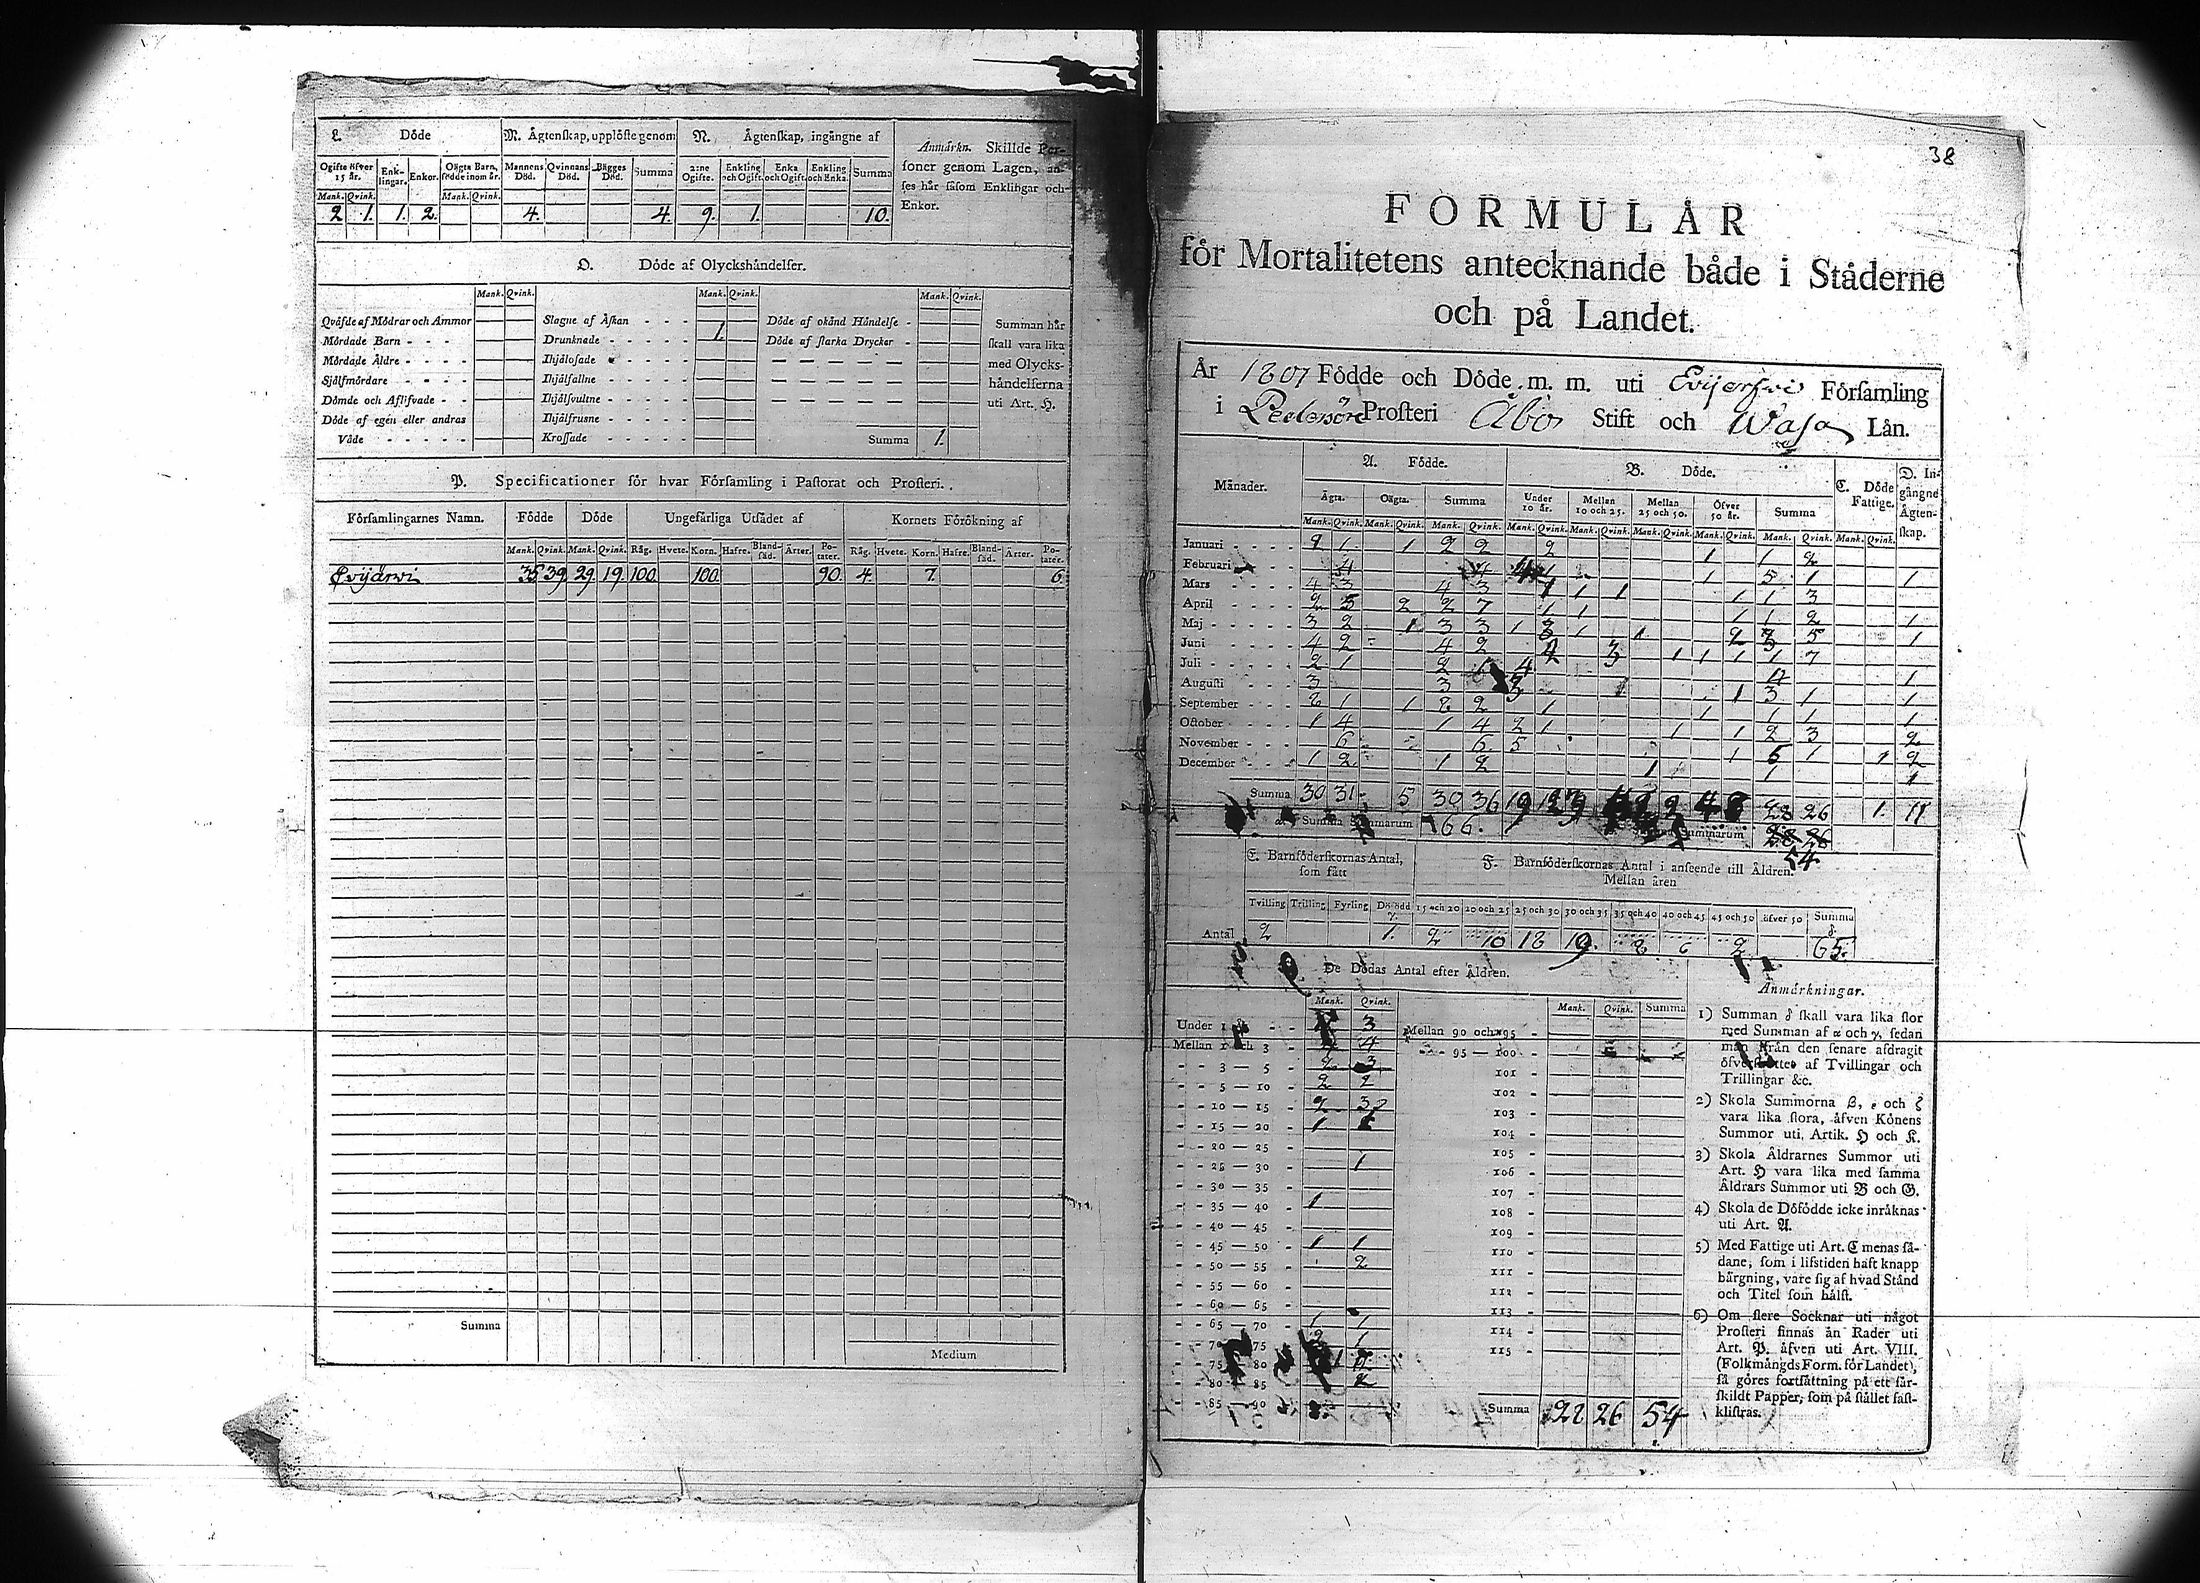 L. Döde
M. Ägtenskap, upplöste genom
N. Ägtenskap, ingångne af
Anmärkn. Skillde Per-
soner genom Lagen, an-
ses här såsom Enklingar och
Enkor.
Ogifte öfver 15 år. Enk-lingar. Enkor. Oägta Barn, födde inom år. Mannens Död. Qvinnans Död. Bägges Död. Summa 2:ne Ogifte. Enkling och Ogift. Enka och Ogift. Enkling och Enka. Summa
Mank. Qvink. Mank. Qvink.
2 1. 1. 2. 4. 4. 9. 1. 10.
O. Döde af Olyckshändelser.
Mank. Qvink. Mank. Qvink. Mank. Qvink.
Qväfde af Mödrar och Ammor
Mördade Barn
Mördade Äldre
Sjelfmördare
Dömde och Aflifvade
Döde af egen eller andras
Våde
Slagne af Åskan
Drunknade 1.
Ihjälosade
Ihjälfallne
Ihjälsvultne
Ihjälfrusne
Krossade
Döde af okänd Händelse
Döde af starka Drycker
Summa 1.
Summan här
skall vara lika
med Olycks-
händelserna
uti Art. H.
P. Specificationer för hvar Församling i Pastorat och Prosteri.
Församlingarnes Namn. Födde Döde Ungefärliga Utsädet af Kornets Förökning af
Mank. Qvink. Mank. Qvink. Råg. Hvete. Korn. Hafre. Bland-säd. Ärter. Po-tater. Råg. Hvete. Korn. Hafre. Bland-säd. Ärter. Po-tater.
Evijärwi 35 39 29. 19. 100. 100. 90. 4. 7. 6.
Summa
Medium
38
FORMULÄR
för Mortalitetens antecknande både i Städerne
och på Landet.
År 1807 Födde och Döde m. m. uti Evijerfwi Församling
i Pedersöre Prosteri Åbo Stift och Wasa Län.
Månader. A. Födde. B. Döde. C. Döde Fattige. D. In-gångne Ägten-skap.
Ägta. Oägta. Summa Under 10 år. Mellan 10 och 25. Mellan 25 och 50. Öfver 50 år. Summa
Mank. Qvink. Mank. Qvink. Mank. Qvink. Mank. Qvink. Mank. Qvink. Mank. Qvink. Mank. Qvink. Mank. Qvink. Mank. Qvink.
Januari 2 1 1 2 2 2 1 1 2
Februari 4 4 1 1 5 1 1
Mars 4 3 4 3 1 1 1 1 1 3
April 2 5 2 2 7 1 1 1 1 2 1
Maj 3 2 1 3 3 1 3 1 1 2 3 5 1
Juni 4 2 4 2 4 3 1 1 1 1 7
Juli 2 1 2 4 4 1
Augusti 3 3 3 1 3 1 1
September 2 1 1 2 2 1 1 1 1 1
October 1 4 1 4 2 1 1 1 2 3 2
November 6 6 5 1 6 1 1 2
December 1 2 1 2 1 1 1
Summa 30 31 5 30 36 19 28 26 1. 11
α Summa Summarum 66. Summarum 54
E. Barnföderskornas Antal,
som fått
F. Barnföderskornas Antal i anseende till Åldren.
Mellan åren
Tvilling Trilling Fyrling Dödödd γ. 15 och 20 20 och 25 25 och 30 30 och 35 35 och 40 40 och 45 45 och 50 öfver 50 Summa δ.
Antal 2 1. 2 10 18 19. 8. 6 2 65.
De Dödas Antal efter Åldren.
Mank. Qvink. Mank. Qvink. Summa
Under 1 år 3 Mellan 90 och 95
Mellan 1 och 3 4 95 — 100
3 — 5 2 3 101
5 — 10 2 2 102
10 — 15 2 3 103
15 — 20 1 104
20 — 25 105
25 — 30 1 106
30 — 35 107
35 — 40 1 108
40 — 45 109
45 — 50 1 1 110
50 — 55 2 111
55 — 60 112
60 — 65 113
65 — 70 1 1 114
70 — 75 2 1 115
75 — 80
80 — 85 2
85 — 90
Summa 28 26 54
Anmärkningar.
1) Summan δ skall vara lika stor
med Summan af α och γ, sedan
man från den senare afdragit
öfverskottet af Tvillingar och
Trillingar &c.
2) Skola Summorna β, ε och ζ
vara lika stora, äfven Könens
Summor uti, Artik. H och K.
3) Skola Åldrarnes Summor uti
Art. H vara lika med samma
Åldrars Summor uti B och G.
4) Skola de Döfödde icke inräknas
uti Art. A.
5) Med Fattige uti Art. C menas så-
dane, som i lifstiden haft knapp
bärgning, vare sig af hvad Stånd
och Titel som hälst.
6) Om flere Socknar uti något
Prosteri finnas än Rader uti
Art. P. äfven uti Art. VIII.
(Folkmängds Form. för Landet),
så göres fortsättning på ett sär-
skildt Papper, som på stället fast-
klistras.